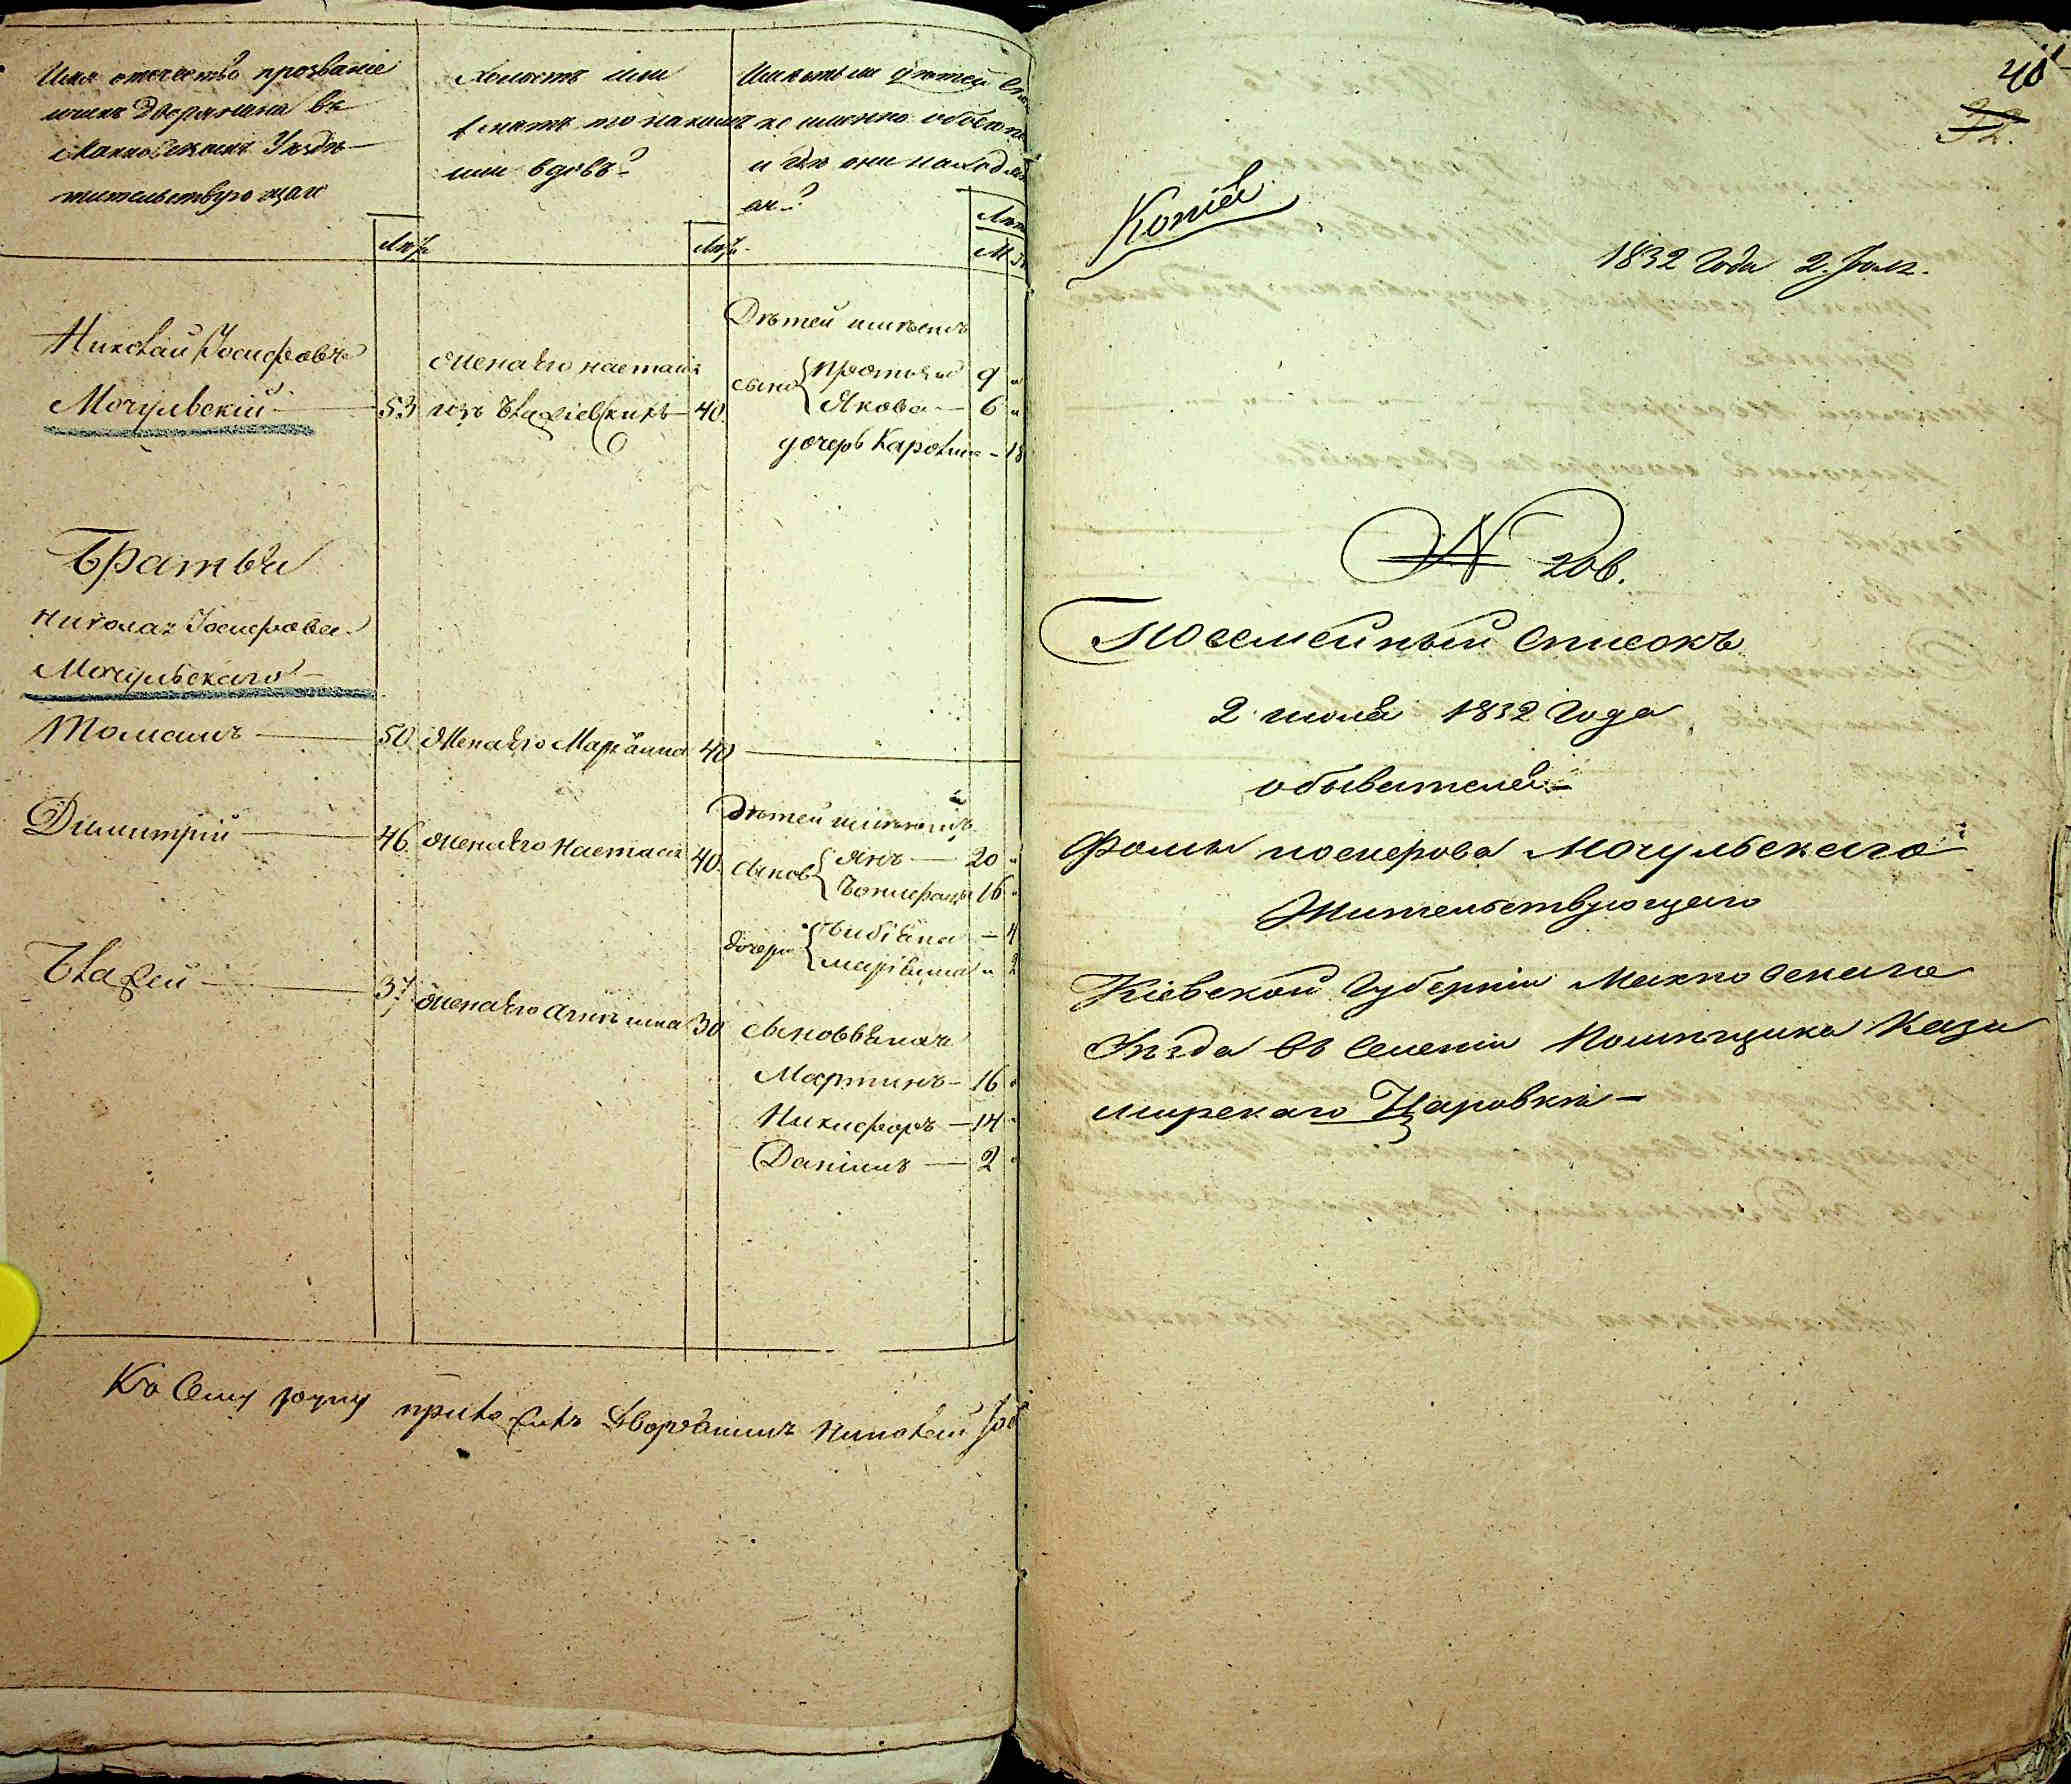 Имя отечество прозваніе
ихъ Дворянина въ
Махновскомъ Уѣздѣ
жительствующаго
Лѣта
Холостъ или
женатъ то на комъ
или вдовъ?
Лѣта
Имѣетъ ли дѣтей
и гдѣ они находят
ся?
Лѣт
М
Николай Іосифовъ
Мочульскій 53
жена его настасія
изъ 40
Дѣтей имѣетъ
сыно
9
Якова 6
дочерь Каролина 18
Братья
Николая Іосифова
Мочульскаго
Томашъ 50 Жена его Маріанна 40
Димитрій 46 жена его Настасія 40
Дѣтей имѣетъ
сынов Янъ 20
16
дочери 4
маріанна 2
37 жена его 30 сыновья
Мартинъ 16
Никифоръ 14
Даніилъ 2
Къ Сему роду Дворянинъ Николай
40
32.
Копія
1832 Года 2. Іюля.
N 206.
Посемейный Списокъ
2 июля 1832 Года
обывателя
Фомы иосифова Мочульскаго
Жительствующаго
Кіевской Губерніи Махновскаго
Уѣзда въ Селеніи Помѣщика Кази
мирскаго Царовки